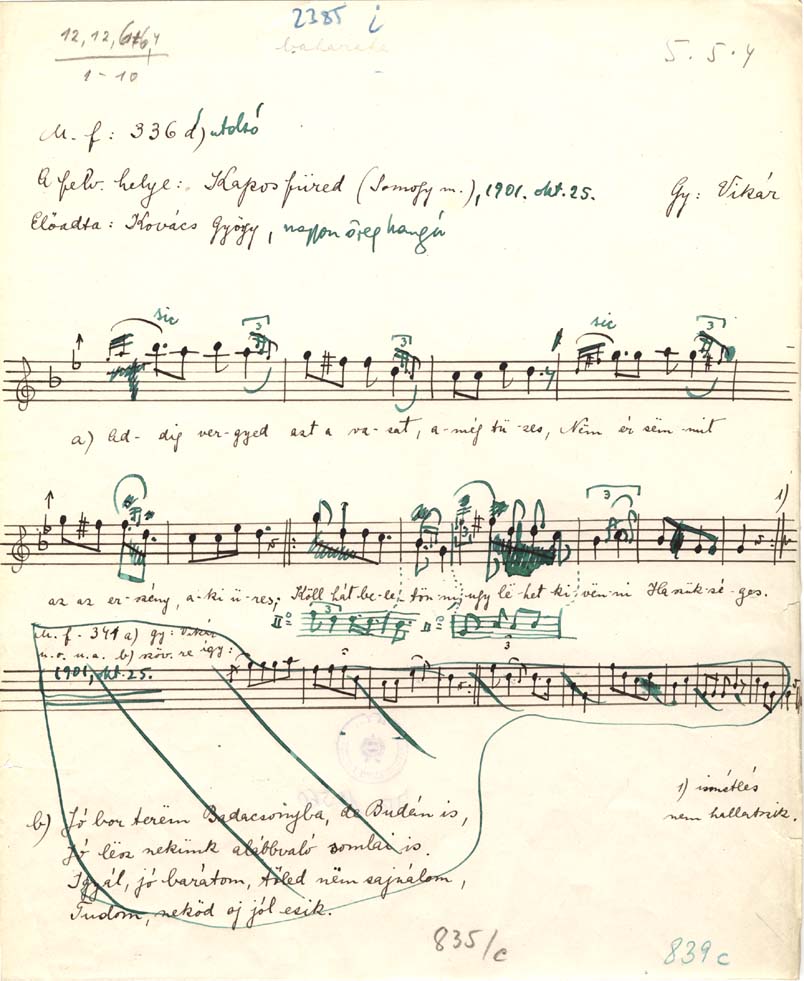 2385 i
12, 12,
1-10
5. 5. 4
M. f: 336 d) utolsó
A felv. helye: Kaposfüred (Somogy m.), 1901. okt. 25. Gy: Vikár
Előadta: Kovács György, nagyon öreg hangú
sic sic
3 3 3
a) Ad-dig ver-gyed azt a va-sat, a-még tü-zes, Nëm ér sëm-mit
3 1)
az az er-szény, a-ki ü-res, Köll hát be-le tön-ni, ugy lë-het ki-vën-ni Ha szük-sé-ges.
IIº 3 IIº 3
M. f. 341 a) gy: Vikár
u.o. u.a. b) szöv. re így:
1901, okt. 25.
1) ismétlés
nem hallatszik.
b) Jó bor terëm Badacsonyba, de Budán is,
Jó lësz nekünk alábbvaló somlai is.
Igyál, jó barátom, tőled nëm sajnálom,
Tudom, neköd aj jól esik.
835/c
839 c